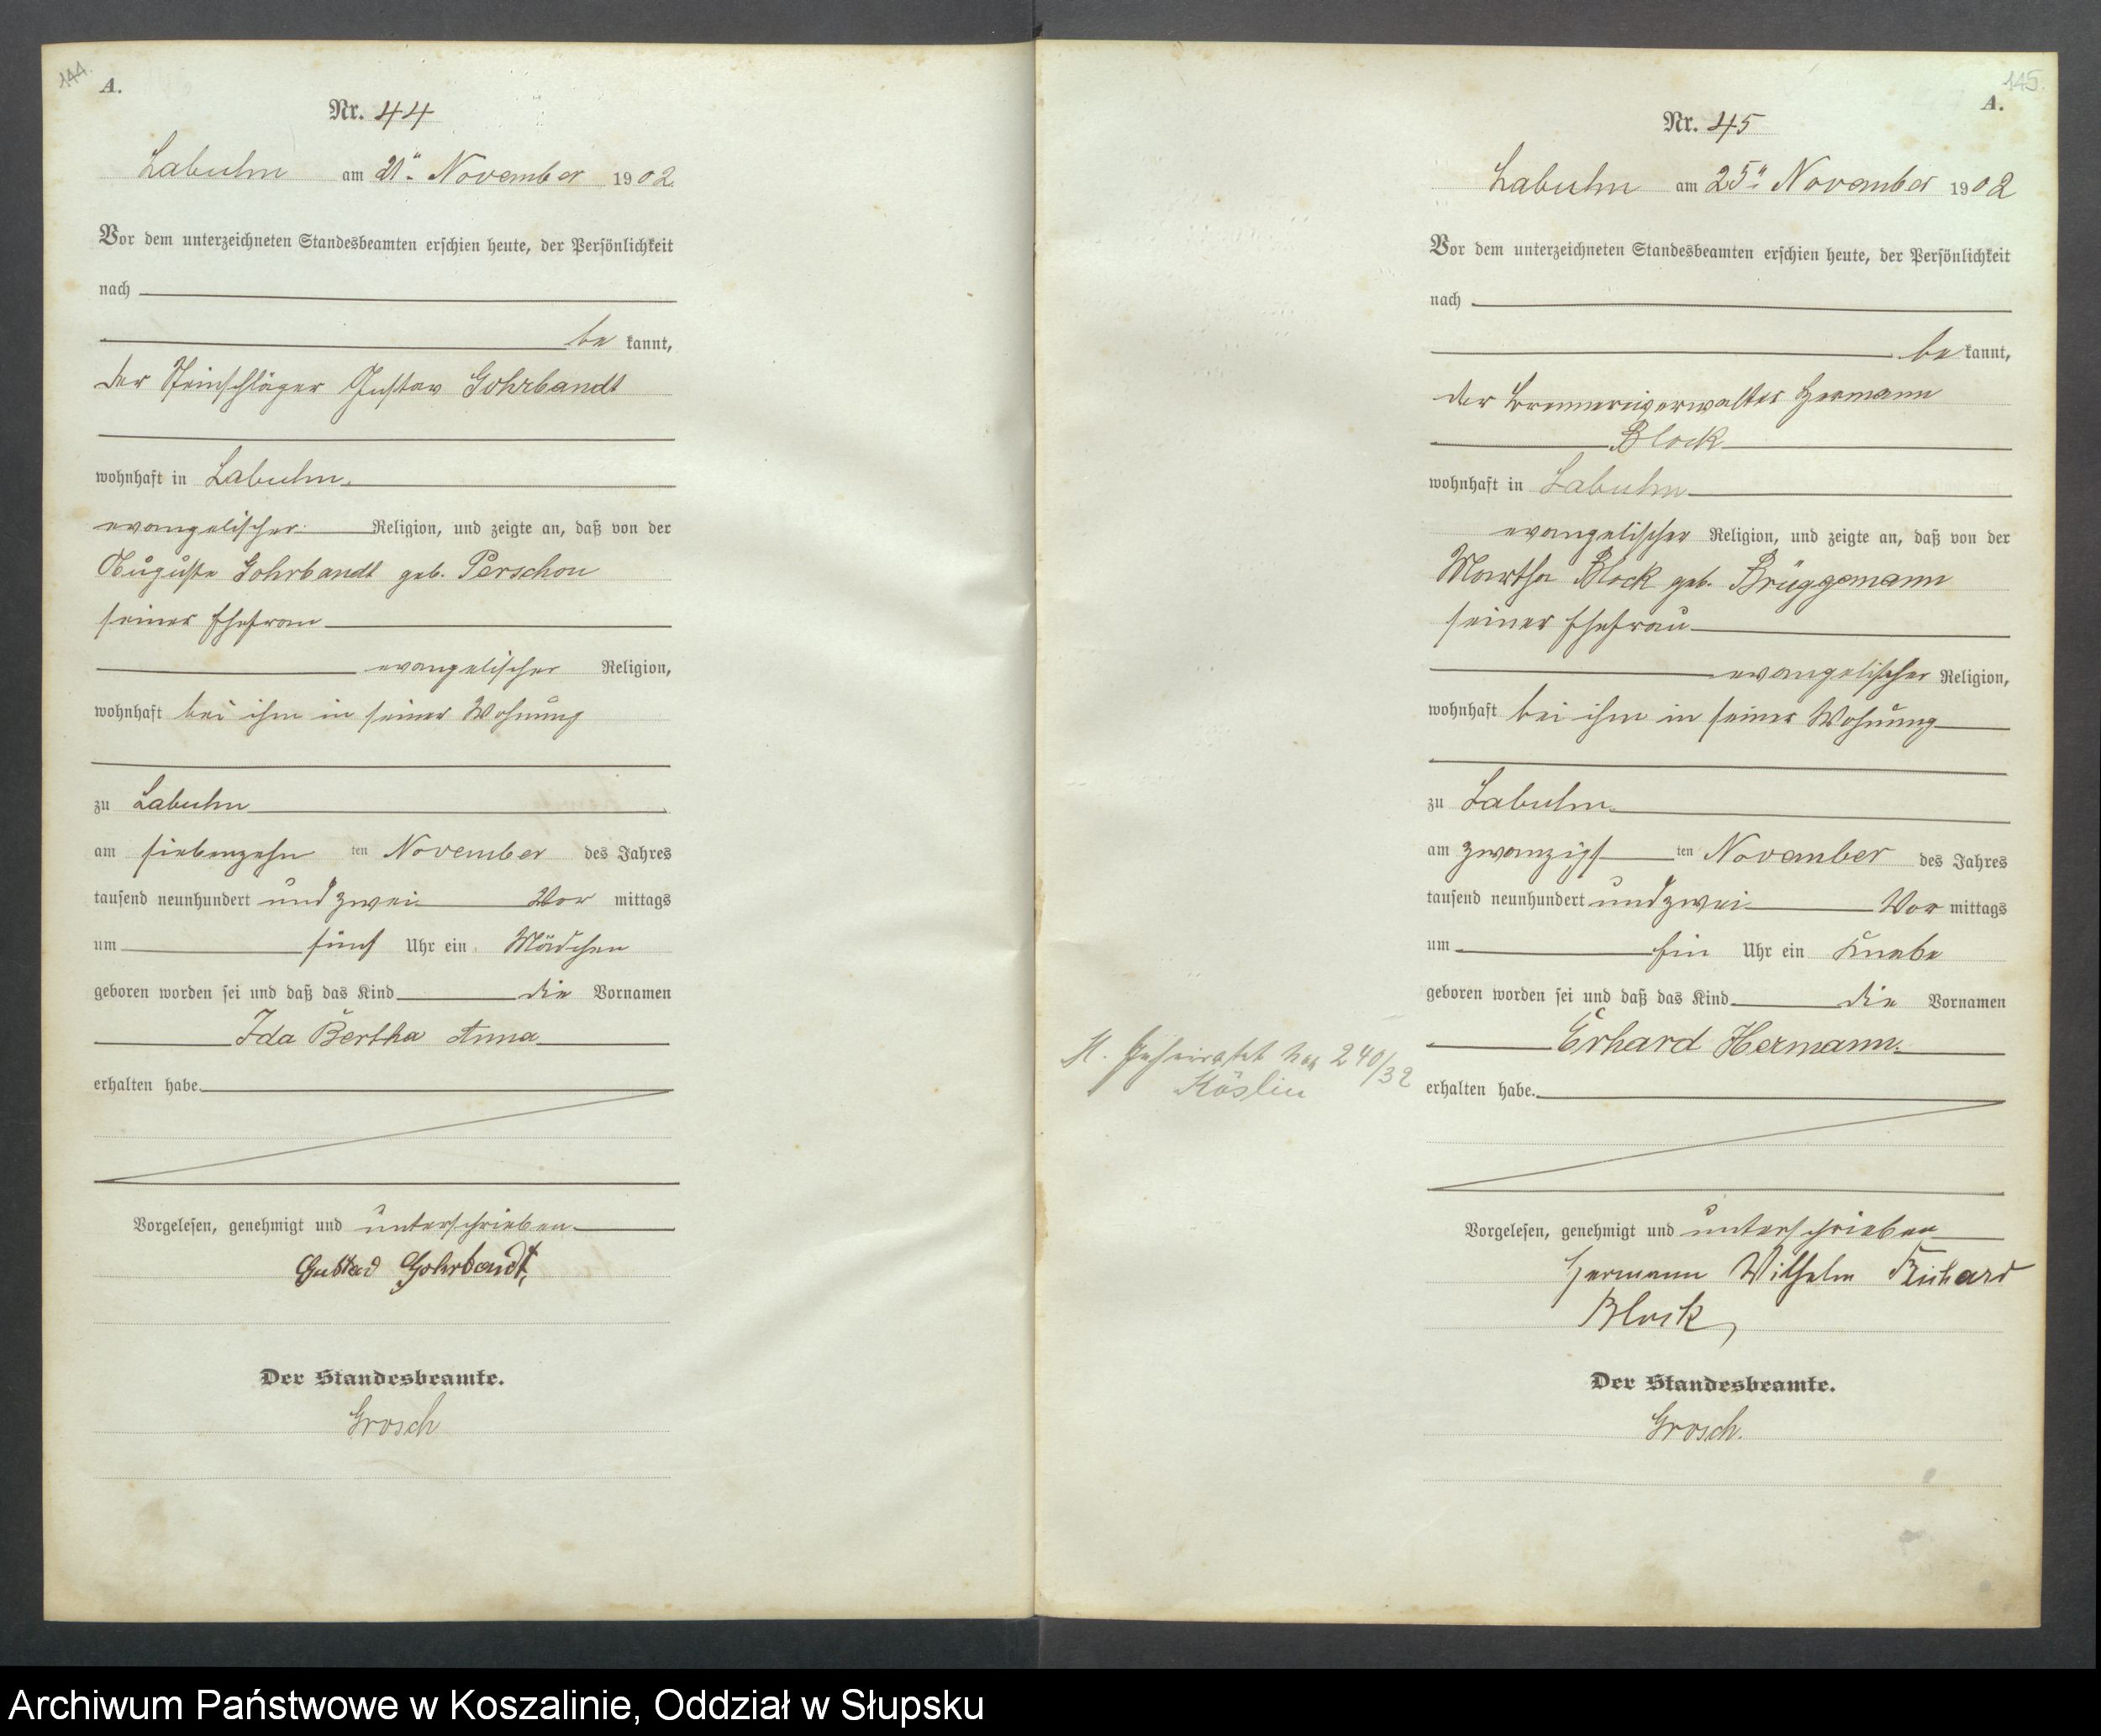 144.
A.
Nr. 44
Labuhn am 21ⁿ November 1902
Vor dem unterzeichneten Standesbeamten erschien heute, der Persönlichkeit
nach
be kannt,
der Steinschläger Gustav Gohrbandt
wohnhaft in Labuhn
evangelischer Religion, und zeigte an, daß von der
Auguste Gohrbandt geb. Perschon
seiner Ehefrau
evangelischer Religion,
wohnhaft bei ihm in seiner Wohnung
zu Labuhn
am siebenzehn ten November des Jahres
tausend neunhundert und zwei Vor mittags
um fünf Uhr ein Mädchen
geboren worden sei und daß das Kind die Vornamen
Ida Bertha Anna
erhalten habe.
Vorgelesen, genehmigt und unterschrieben
Gustav Gohrbandt,
Der Standesbeamte.
Grosch
145.
A.
Nr. 45
Labuhn am 25ⁿ November 1902
Vor dem unterzeichneten Standesbeamten erschien heute, der Persönlichkeit
nach
be kannt,
der Brennereiverwalter Hermann
Block
wohnhaft in Labuhn
evangelischer Religion, und zeigte an, daß von der
Martha Block geb. Brüggemann
seiner Ehefrau
evangelischer Religion,
wohnhaft bei ihm in seiner Wohnung
zu Labuhn
am zwanzigs ten November des Jahres
tausend neunhundert und zwei Vor mittags
um Ein Uhr ein Knabe
geboren worden sei und daß das Kind die Vornamen
Erhard Hermann
erhalten habe.
Vorgelesen, genehmigt und unterschrieben
Hermann Wilhelm Richard
Block
Der Standesbeamte.
Grosch.
geheiratet 240/32
Köslin
Archiwum Państwowe w Koszalinie, Oddział w Słupsku